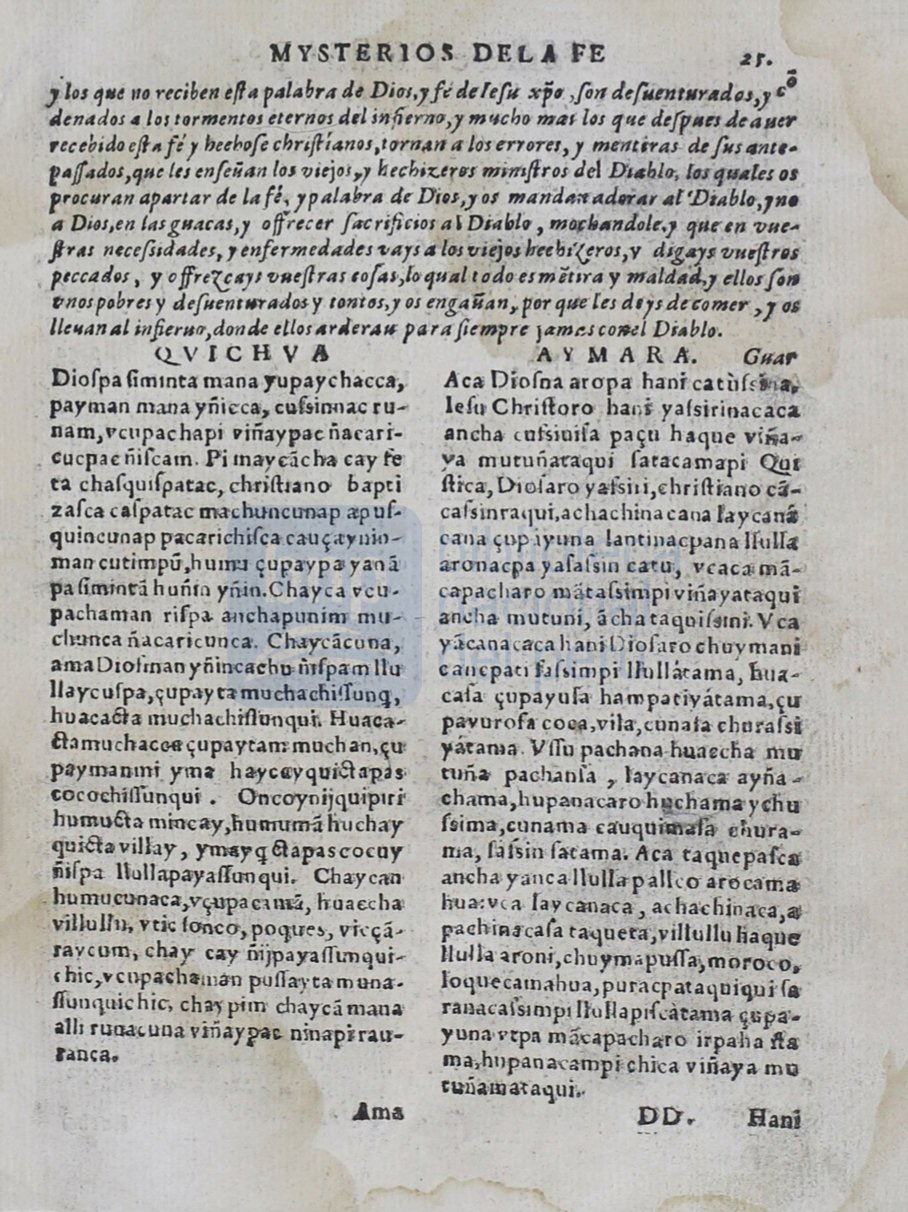 MYSTERIOS DE LA FE 25.
y los que no reciben eſta palabra de Dios, y fé de Ieſu xp̃o, ſon deſuenturados, y cõ
denados a los tormentos eternos del infierno, y mucho mas los que deſpues de auer
recebido eſta fé y hechoſe chriſtianos, tornan a los errores, y mentiras de ſus ante-
paſſados, que les enſeñan los viejos, y hechizeros miniſtros del Diablo, los quales os
procuran apartar de la fé, y palabra de Dios, y os mandan adorar al Diablo, y no
a Dios, en las guacas, y offrecer ſacrificios al Diablo, mochandole. y que en vue-
ſtras neceſsidades, y enfermedades vays a los viejos hechizeros, y digays vueſtros
peccados, y offrezcays vueſtras coſas, lo qual todo es mẽtira y maldad, y ellos ſon
vnos pobres y deſuenturados y tontos, y os engañan, por que les deys de comer, y os
lleuan al infierno, donde ellos arderan para ſiempre james con el Diablo.
QVICHVA
Dioſpa ſiminta mana yupaychacca,
payman mana yñicca, cuſsinnac ru-
nam, vcupachapi viñaypac ñacari-
cucpac ñiſcam. Pi maycãcha cay fe
ta chaſquiſpatac, chriſtiano bapti
zaſca caſpatac machuncunap apuſ-
quincunap pacarichiſca cauçaynin-
man cutimpũ, humu çupaypa yanã
pa ſimintã huñin yñin. Chayca vcu-
pachaman riſpa anchapunim mu-
chunca ñacaricunca. Chaycãcuna,
ama Dioſman yñincachu ñiſpam llu
llaycuſpa, çupayta muchachiſſunq̃,
huacacta muchachiſſunqui. Huaca-
cta muchacca çupaytam muchan, çu
paymanmi yma haycayquictapas
cocochiſſunqui. Oncoynijquipiri
humucta mincay, humumã huchay
quicta villay, ymayq̃ctapas cocuy
ñiſpa llullapayaſſunqui. Chaycan
humucunaca, vçupacamã, huaccha
villullu, vtic ſonco, poques, vicçã-
raycum, chay cay ñijpayaſſunqui-
chic, vcupachaman puſſayta muna-
ſſunquichic, chaypim chaycã mana
alli runacuna viñaypac ninapi rau-
ranca.
Ama
AYMARA. Guar
Aca Dioſna aropa hani catùſsina,
Ieſu Chriſtoro hani yaſsirinacaca
ancha cuſsiuiſa paçu haque viña-
ya mutuñataqui ſatacamapi Qui
ſtica, Dioſaro yaſsiri, chriſtiano cã-
caſsinraqui, achachinacana laycanã
cana çupayuna lantinacpana llulla
aronacpa yaſaſsin catu, vcaca mã-
capacharo mãtaſsimpi viñayataqui
ancha mutuni, ãcha taquiſsini. Vca
yãcanacaca hani Dioſaro chuymani
cancpati ſaſsimpi llullátama, hua-
caſa çupayuſa hampatiyátama, çu
payuroſa coca, vila, cunaſa churaſsi
yátama. Vſſu pachana huaccha mu
tuña pachanſa, laycanaca ayña-
chama, hupanacaro huchama ychu
ſsima, cunama cauquimaſa chura-
ma, ſaſsin ſatama. Aca taquepaſca
ancha yanca llulla pallco arocama
hua: vca laycanaca, achachinaca, a
pachinacaſa taqueta, villullu haque
llulla aroni, chuyma puſſa, moroco,
loquecamahua, puracpataquiqui ſa
ranacaſsimpi llullapiſcàtama çupa-
yuna vtpa mãcapacharo irpaha ſta
ma, hupanacampi chica viñaya mu
tuñamataqui.
DD. Hani